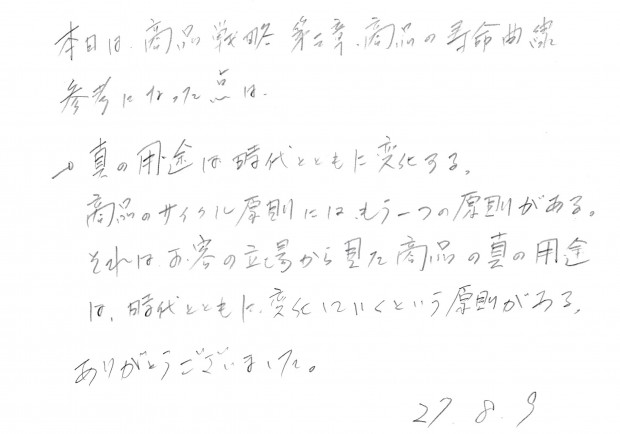 本日は、商品戦略 第二章、商品の寿命曲線
参考になった点は、
→真の用途は時代とともに変化する。
商品のサイクル原則にはもう一つの原則がある。
それは、お客の立場から見た商品の真の用途
は、時代とともに変化していくという原則がある。
ありがとうございました。
27. 8. 9